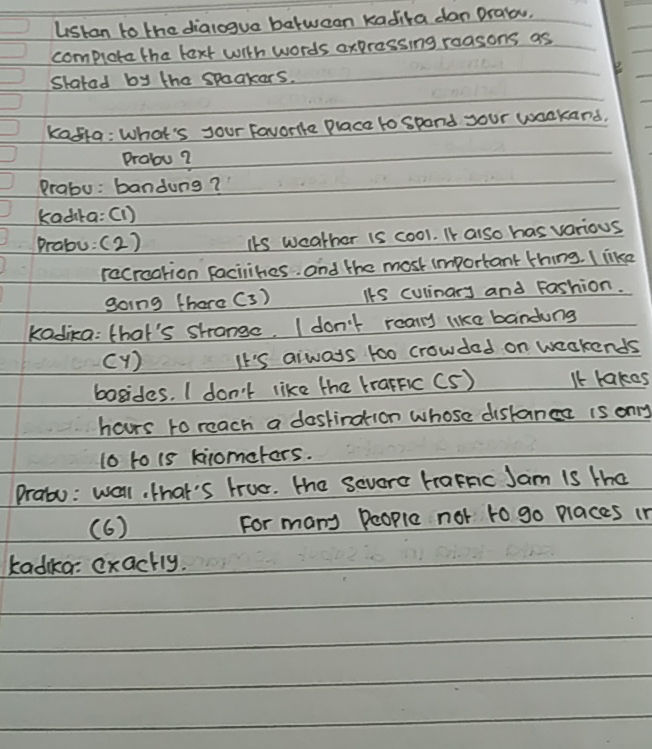 Listen to the dialogue between kadita dan Prabu.
complete the text with words expressing reasons as
stated by the speakers.
Kadita: What's your Favorite Place to spend your weekend.
Prabu?
Prabu: bandung?
Kadita: (1)
Prabu: (2) It's weather is cool. It also has various
recreation facilities. and the most important thing. I like
going there (3) It's culinary and Fashion.
Kadika: that's strange. I don't really like bandung
(4) It's always too crowded on weekends
besides. I don't like the traffic (5) It takes
hours to reach a destination whose distance is only
10 to 15 kilometers.
Prabu: well. that's true. the severe traffic Jam is the
(6) For many People not to go places in
kadika: exactly.